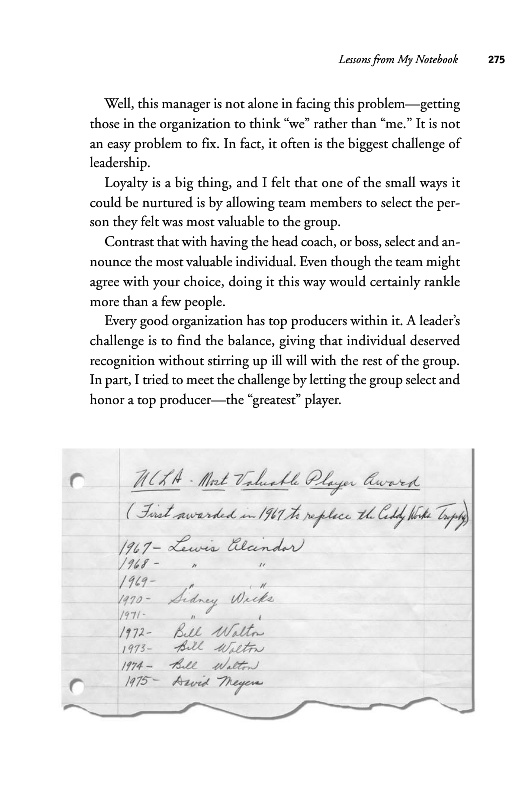 Lessons from My Notebook 275
Well, this manager is not alone in facing this problem—getting
those in the organization to think “we” rather than “me.” It is not
an easy problem to fix. In fact, it often is the biggest challenge of
leadership.
Loyalty is a big thing, and I felt that one of the small ways it
could be nurtured is by allowing team members to select the per-
son they felt was most valuable to the group.
Contrast that with having the head coach, or boss, select and an-
nounce the most valuable individual. Even though the team might
agree with your choice, doing it this way would certainly rankle
more than a few people.
Every good organization has top producers within it. A leader’s
challenge is to find the balance, giving that individual deserved
recognition without stirring up ill will with the rest of the group.
In part, I tried to meet the challenge by letting the group select and
honor a top producer—the “greatest” player.
UCLA - Most Valuable Player Award
(First awarded in 1967 to replace the Caddy Works Trophy)
1967- Lewis Alcindor
1968- " "
1969- " "
1970- Sidney Wicks
1971- " "
1972- Bill Walton
1973- Bill Walton
1974- Bill Walton
1975- David Meyers